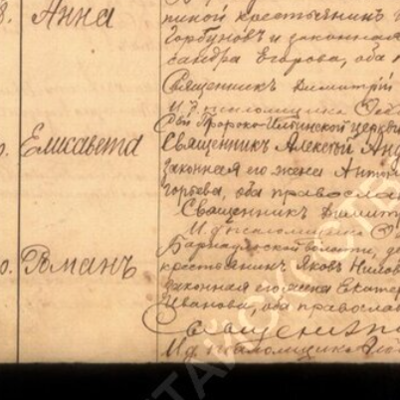 8. Анна
пиной крестьянинъ
Горбуновъ и законная
сандра Егорова, оба
Священникъ Димитрій
И. д. псаломщика
Свя Пророко-Ильинской церкви
о. Елисавета Священникъ Алексѣй Анд
законная его жена Антон
горьева, оба православ
Священникъ Димитр
И. д. псаломщика
Барнаульской волости, де
о. Романъ крестьянинъ Яковъ Нилов
законная его жена Екатер
Иванова, оба правосла
Священник
И. д. псаломщика